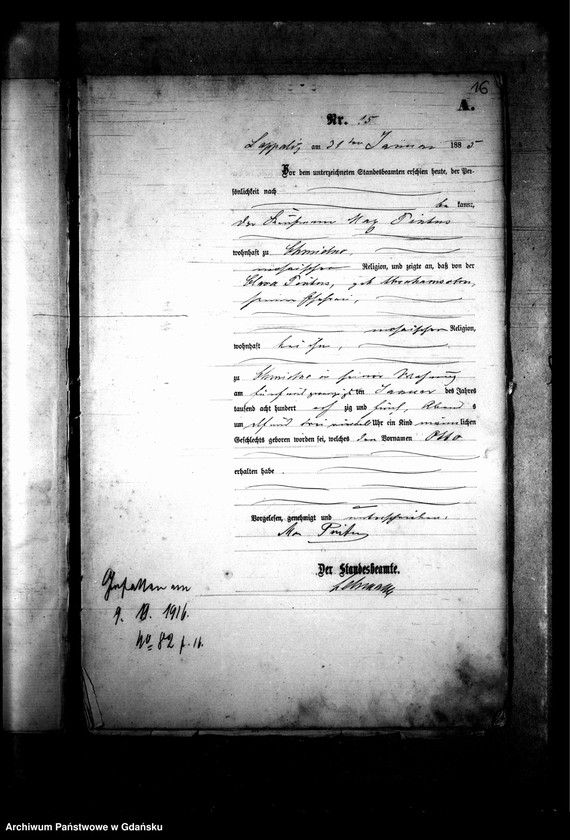 16
A.
Nr. 15
am 31ten Januar 1885
Vor dem unterzeichneten Standesbeamten erschien heute, der Per-
sönlichkeit nach
be kannt,
der Kaufmann Max Pintus
wohnhaft zu Chmielno,
mosaischer Religion, und zeigte an, daß von der
Clara Pintus, geb. Abrahamsohn,
seiner Ehefrau,
mosaischer Religion,
wohnhaft bei ihm,
zu Chmielno in seiner Wohnung
am fünf und zwanzigsten Januar des Jahres
tausend acht hundert acht zig und fünf, Abends
um elf und drei viertel Uhr ein Kind männlichen
Geschlechts geboren worden sei, welches den Vornamen Otto
erhalten habe.
Vorgelesen, genehmigt und unterschrieben.
Max Pintus
Der Standesbeamte.
Gefallen am
9. 1916.
No 82 p. 16.
Archiwum Państwowe w Gdańsku